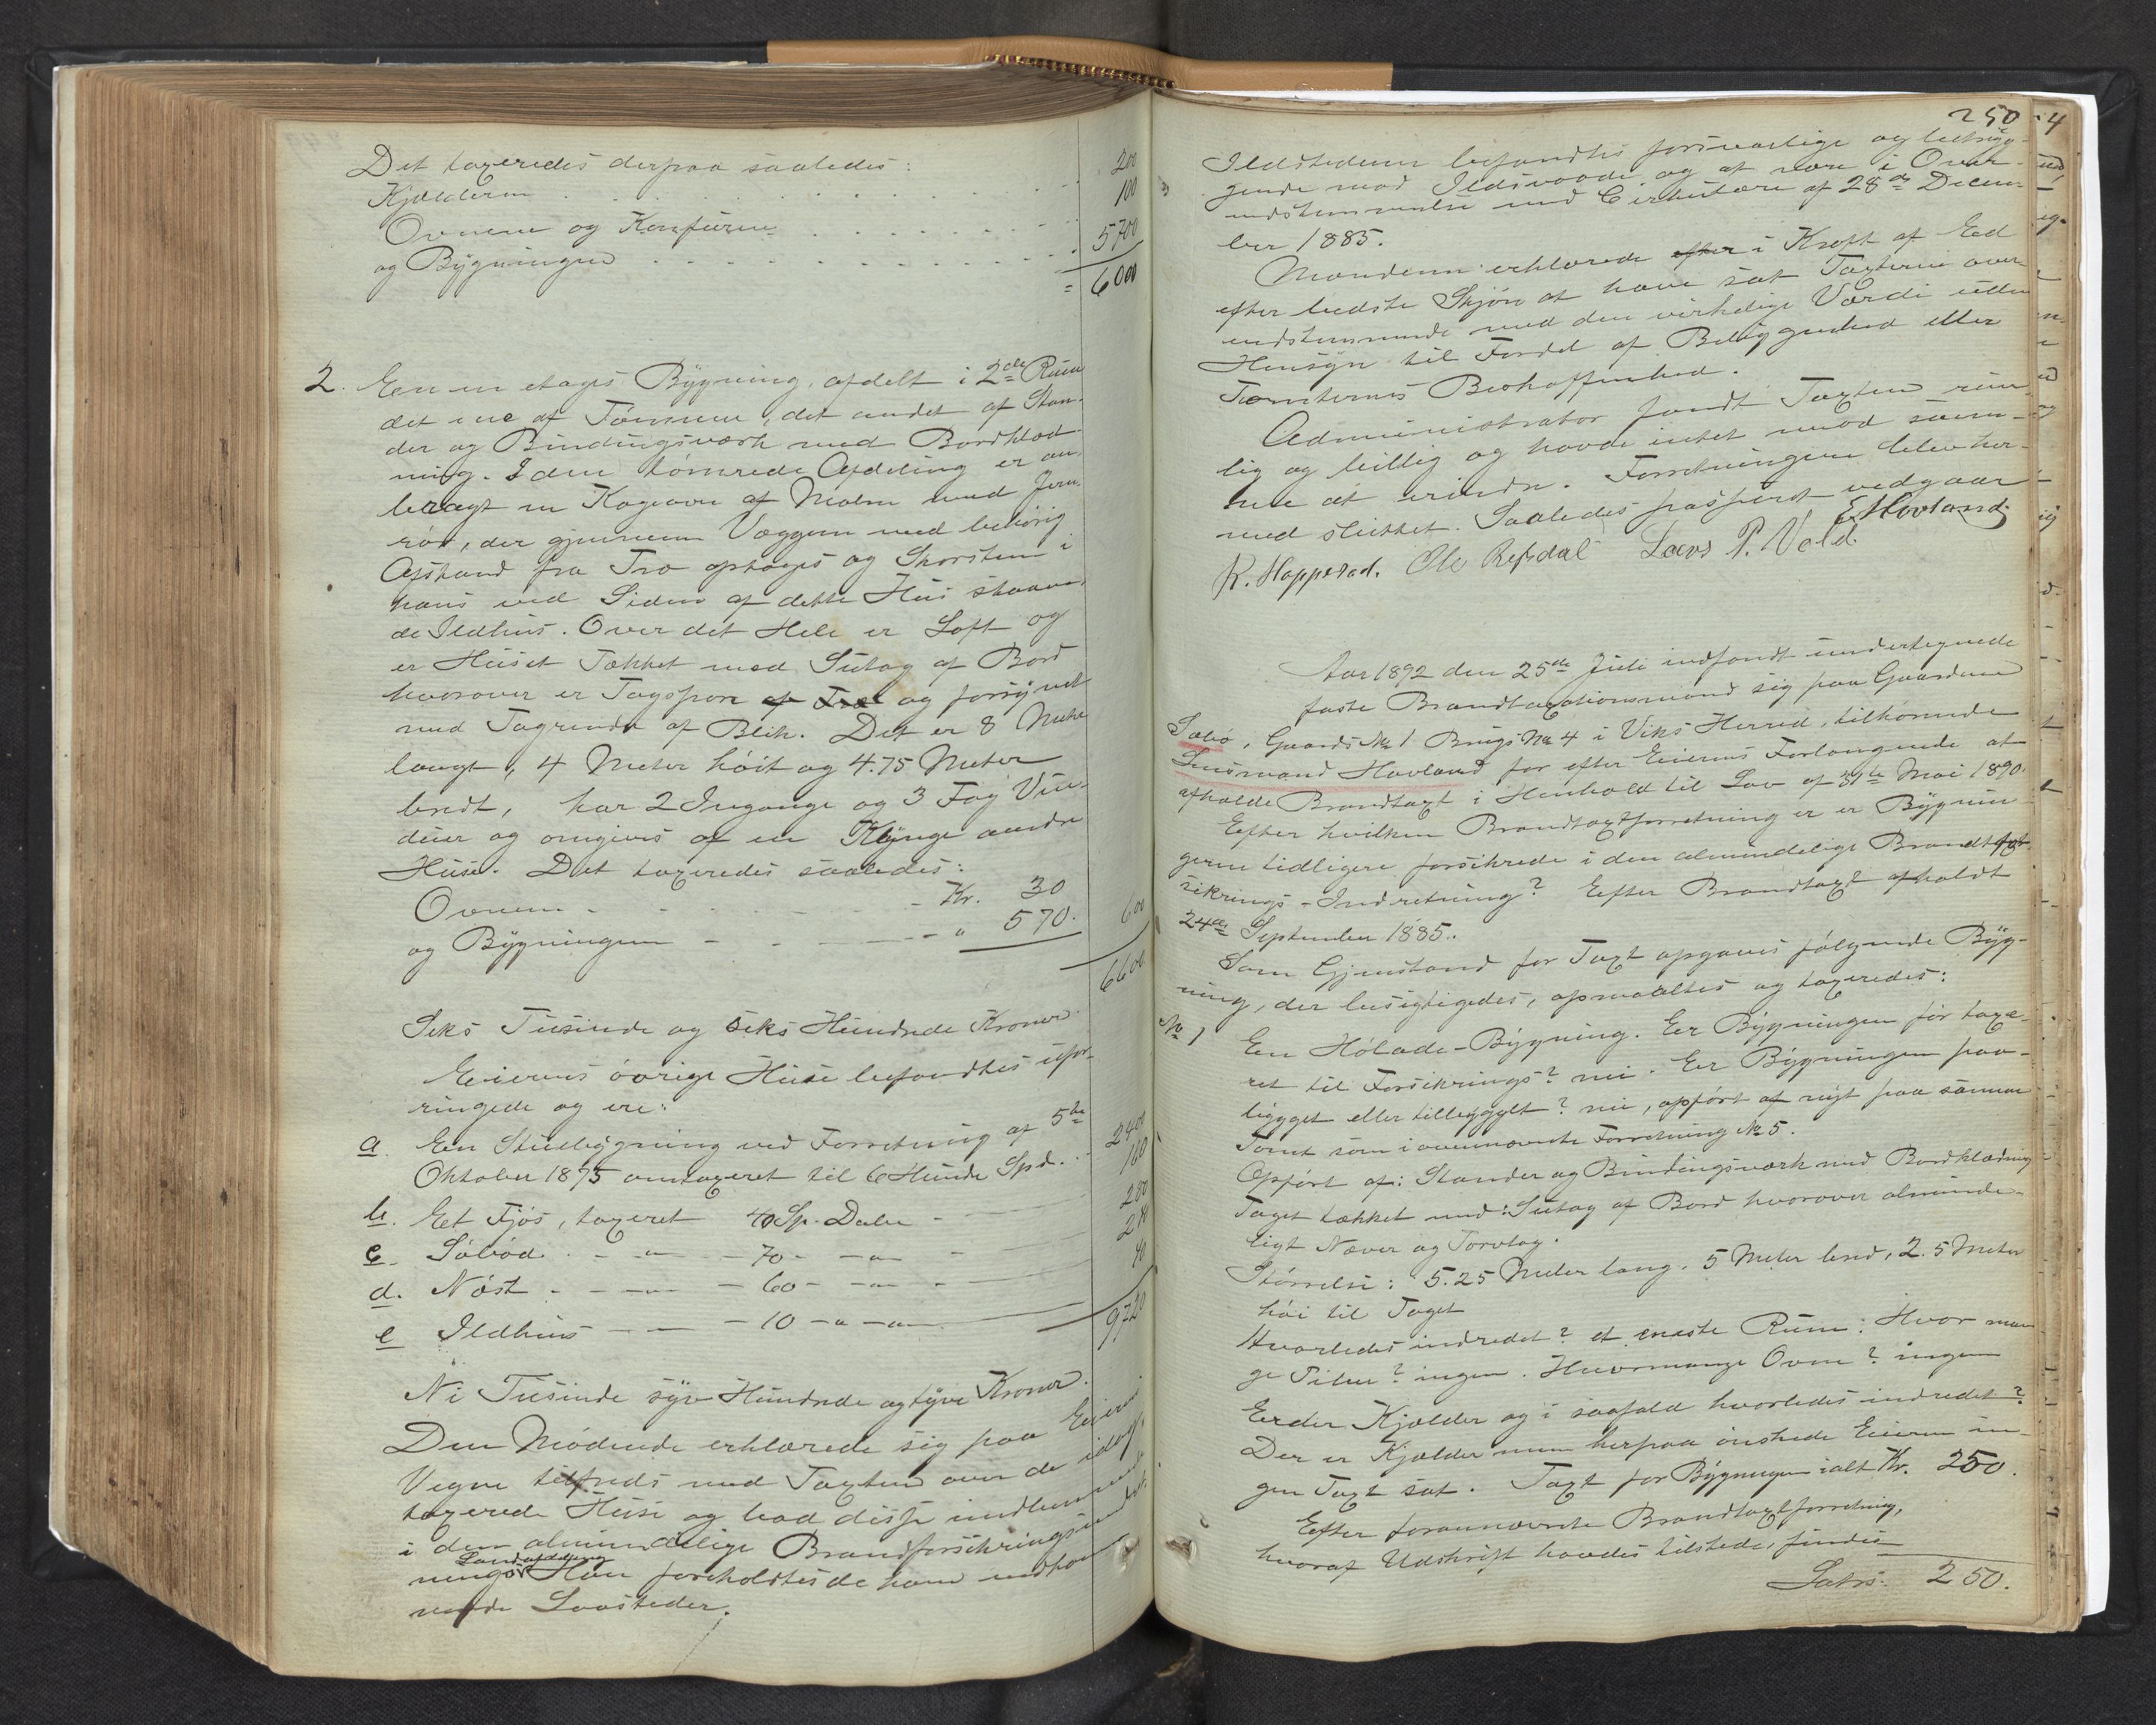 Det taxeredes derpaa saaledes:
Kjælderen . . . . . . . . 200
Ovnene og Komfuren . . . . . . . 100
og Bygningen . . . . . . . . 5700
= 6000
2. Een en etages Bygning, afdelt i 2de Rum
det ene af Tømmer, det andet af Stan-
der og Bindingsværk med Bordklæd-
ning. I den tømrede Afdeling er an-
bragt en Kogeovn af Malm med Jern-
rør, der gjennem Væggen med behørig
Afstand fra Træ optages og Skorsten i
hans ved Siden af dette Hus staaen-
de Ildhus. Over det Hele er Loft og
er Huset Tækket med Sutag af Bord
hvorover er Tagspon af Træ og forsynet
med Tagrender af Blik. Det er 8 Meter
langt, 4 Meter høit og 4.75 Meter
bredt, har 2 Indgange og 3 Fag Vin-
duer og omgives af en Klynge andre
Huse. Det taxeredes saaledes:
Ovnen - - - - - - Kr. 30
og Bygningen - - - - - " 570. 600
6600
Seks Tusinde og seks Hundrede Kroner.
Eierens øvrige Huse befandtes ufor-
ringede og ere:
a. Een Stuebygning ved Forretning af 5te
Oktober 1875 omtaxeret til 6 Hundr Spd. . 2400
b. Eet Fjøs, taxeret 40 Sp. Daler - 160
c. Søbod . - - " - 70 - - " - 280
d. Nøst . - - - " - 60 - - " - 240
e Ildhus - - - 10 - " - " - 40
9720
Ni Tusinde syv Hundrede og tyve Kroner.
Den Mødende erklærede sig paa Eierens
Vegne tilfreds med Taxten over de idag
taxerede Huse og bad disse indlemmede
i den almindelige Brandforsikringsindret-
nings Landafdeling Han foreholdtes de ham vedkom-
mende Lovsteder.
250
Ildstederne befandtes forsvarlige og betryg-
gende mod Ildsvaade og at være i Over-
endstemmelse med Cirkulære af 28de Decem-
ber 1885.
Mændene erklærede efter i Kraft af Eed
efter bedste Skjøn at have sat Taxterne over-
endstemmende med den virkelige Værdi uden
Hensyn til Fordel af Beliggenhed eller
Tomternes Beskaffenhed.
Administrator fandt Taxten rime-
lig og billig og havde intet mod sam-
me at erindre. Forretningen blev her-
med sluttet. Saaledes passeret vedgaar
E Hovland.
K. Hopperad. Ole Refsdal Lars P. Vold.
Aar 1892 den 25de Juli indfandt undertegnede
faste Brandtaxationsmænd sig paa Gaarden
Sæbø, Gaards No 1 Brugs No 4 i Viks Herred, tilhørende
Lensmand Hovland for efter Eierens Forlangende at
afholde Brandtaxt i Henhold til Lov af 31te Mai 1890.
Efter hvilken Brandtaxtforretning er er Bygnin-
gerne tidligere forsikrede i den almindelige Brandtfor-
sikrings-Indretning? Efter Brandtaxt afholdt
24de September 1885..
Som Gjenstand for Taxt opgaves følgende Byg-
ning, der besigtigedes, opmaaltes og taxeredes:
No 1 Een Hølade-Bygning. Eer Bygningen før taxe-
ret til Forsikrings? nei. Eer Bygningen paa-
bygget eller tilbygget? nei, opført af nyt paa samme
Tomt som i ovennævnte Forretning No 5.
Opført af: Stander og Bindingsværk med Bordklædning
Taget tækket med: Sutag af Bord hvorover alminde-
ligt Næver og Torvtag.
Størrelse: 5.25 Meter lang. 5 Meter bred, 2.5 Meter
høi til Taget
Hvorledes indredet? et eneste Rum: Hvor man-
ge Piber? ingen. Hvormange Ovne? ingen
Eer der Kjælder og i saafald hvorledes indredet?
Der er Kjælder men herpaa ønskede Eieren in-
gen Taxt sat. Taxt for Bygningen ialt Kr. 250.
Efter forannævnte Brandtaxtforretning,
hvoraf Udskrift havdes tilstede, findes
Latus. 250.